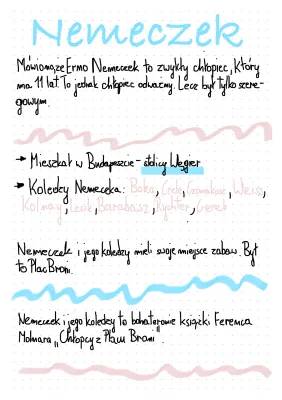 Nemeczek
Mówi o nim że Erno Nemeczek to zwykły chłopiec, który
ma 11 lat. To jednak chłopiec odważny. Lecz był tylko szere-
gowym.
→ Mieszkał w Budapeszcie - stolicy Węgier
→ Koledzy Nemeczka: Boka, Csele, Csonakosz, Weisz,
Kolnay, Leszik, Barabasz, Richter, Gereb
Nemeczek i jego koledzy mieli swoje miejsce zabaw. Był
to Plac Broni.
Nemeczek i jego koledzy to bohaterowie książki Ferenca
Molnara „Chłopcy z Placu Broni".